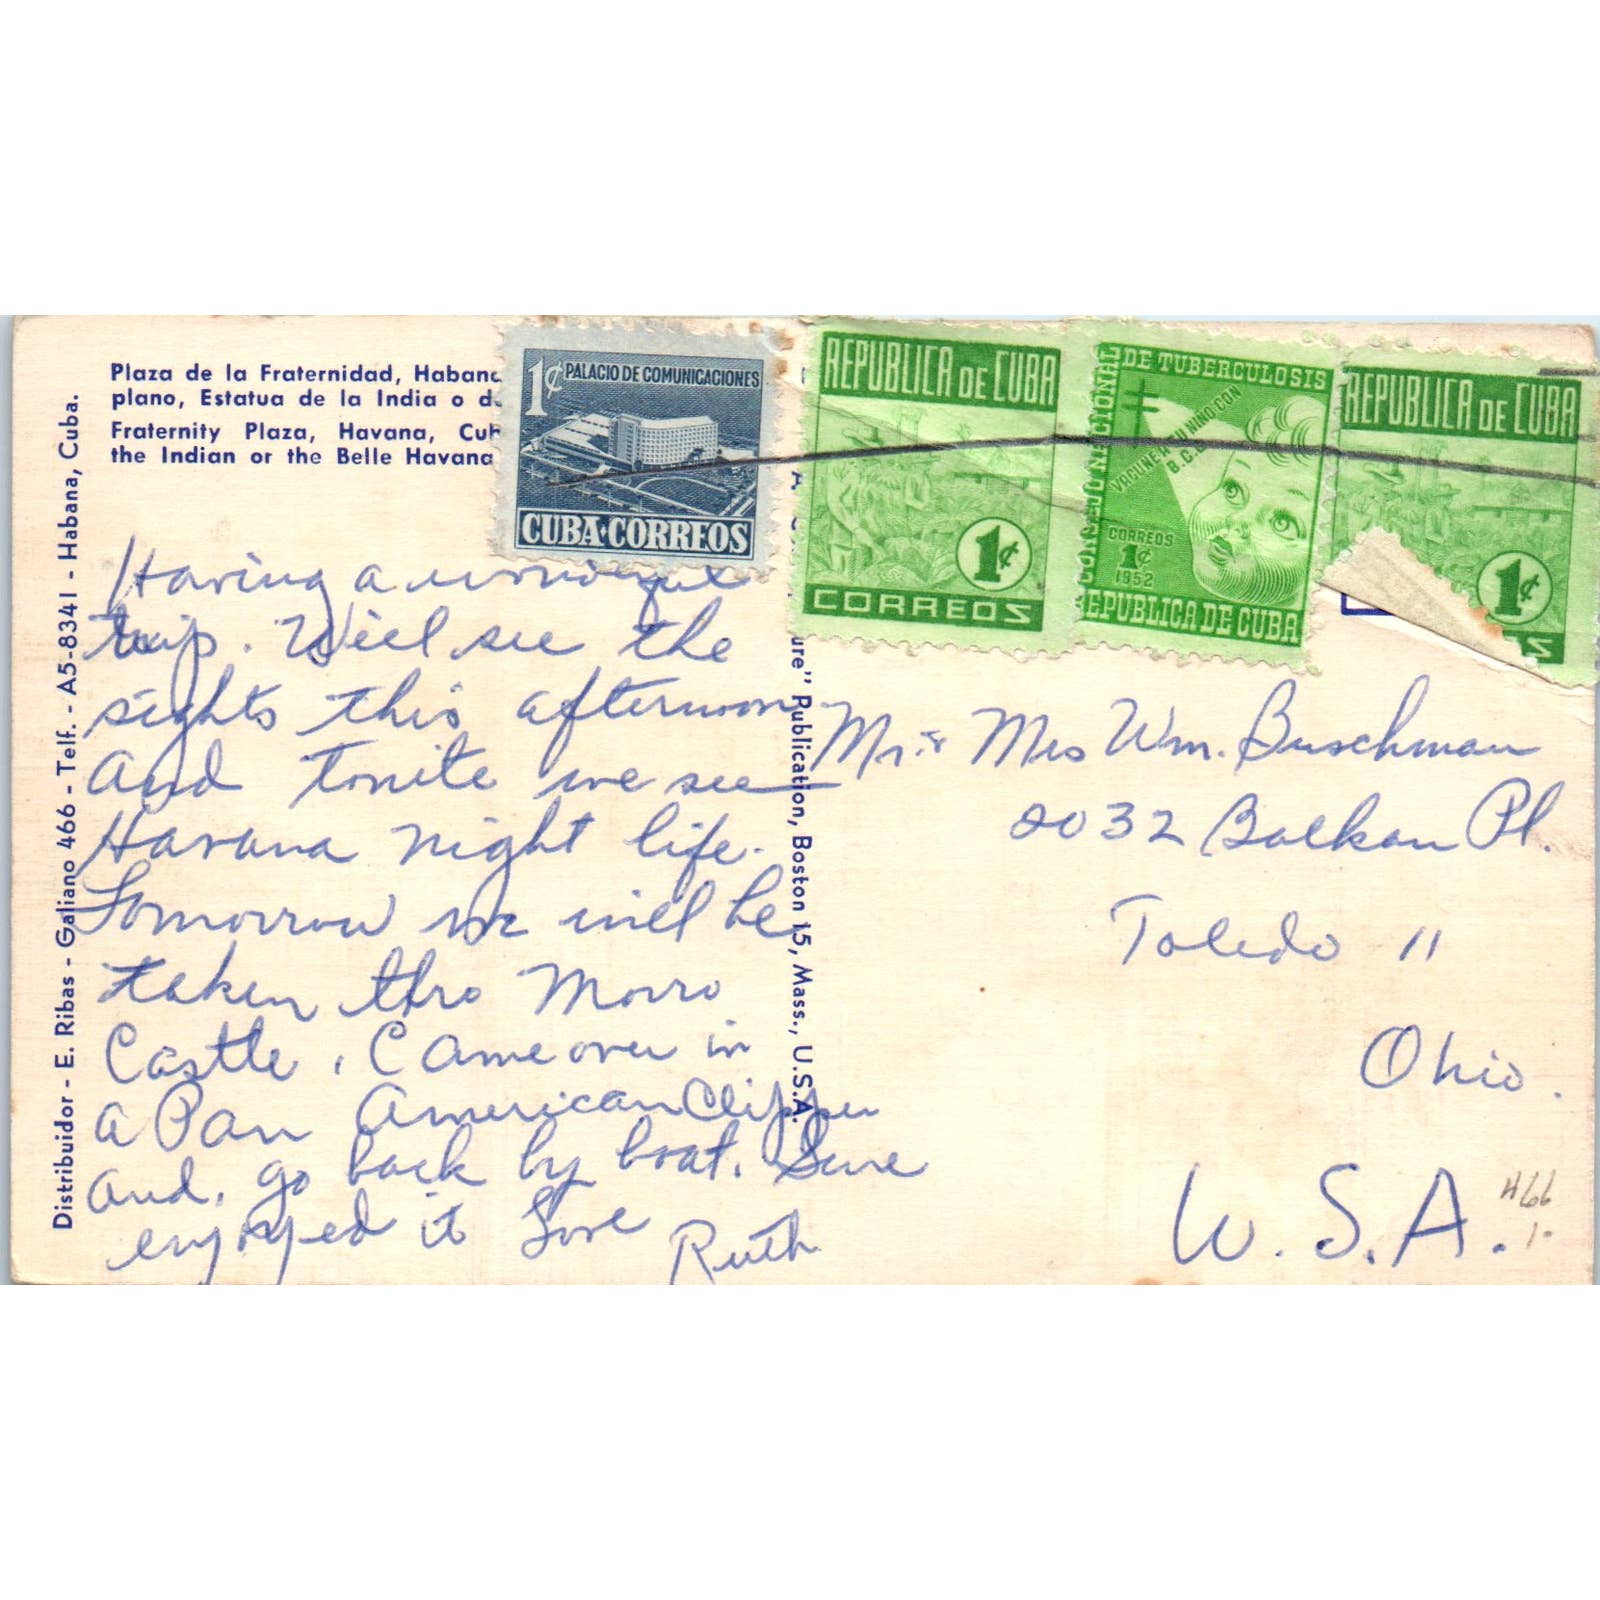 Plaza de la Fraternidad, Habana
plano, Estatua de la India o d
Fraternity Plaza, Havana, Cub
the Indian or the Belle Havana
Distribuidor - E. Ribas - Galiano 466 - Telf. - A5-8341 - Habana, Cuba.
1¢ PALACIO DE COMUNICACIONES
CUBA·CORREOS
REPUBLICA DE CUBA
1¢
CORREOS
CONSEJO NACIONAL
DE TUBERCULOSIS
VACUNE A SU NIÑO CON
B.C.G.
CORREOS
1¢
1952
REPUBLICA DE CUBA
REPUBLICA DE CUBA
1¢
S
ure" Publication, Boston 15, Mass., U.S.A.
Having a wonderful
trip. Will see the
sights this afternoon
and tonite we see
Havana night life.
Tomorrow we will be
taken thro Morro
Castle. Came over in
a Pan American Clipper
and. go back by boat. Sure
enjoyed it Love Ruth
Mr. & Mrs Wm. Buschman
2032 Balkan Pl.
Toledo 11
Ohio.
U.S.A.
H66
1-